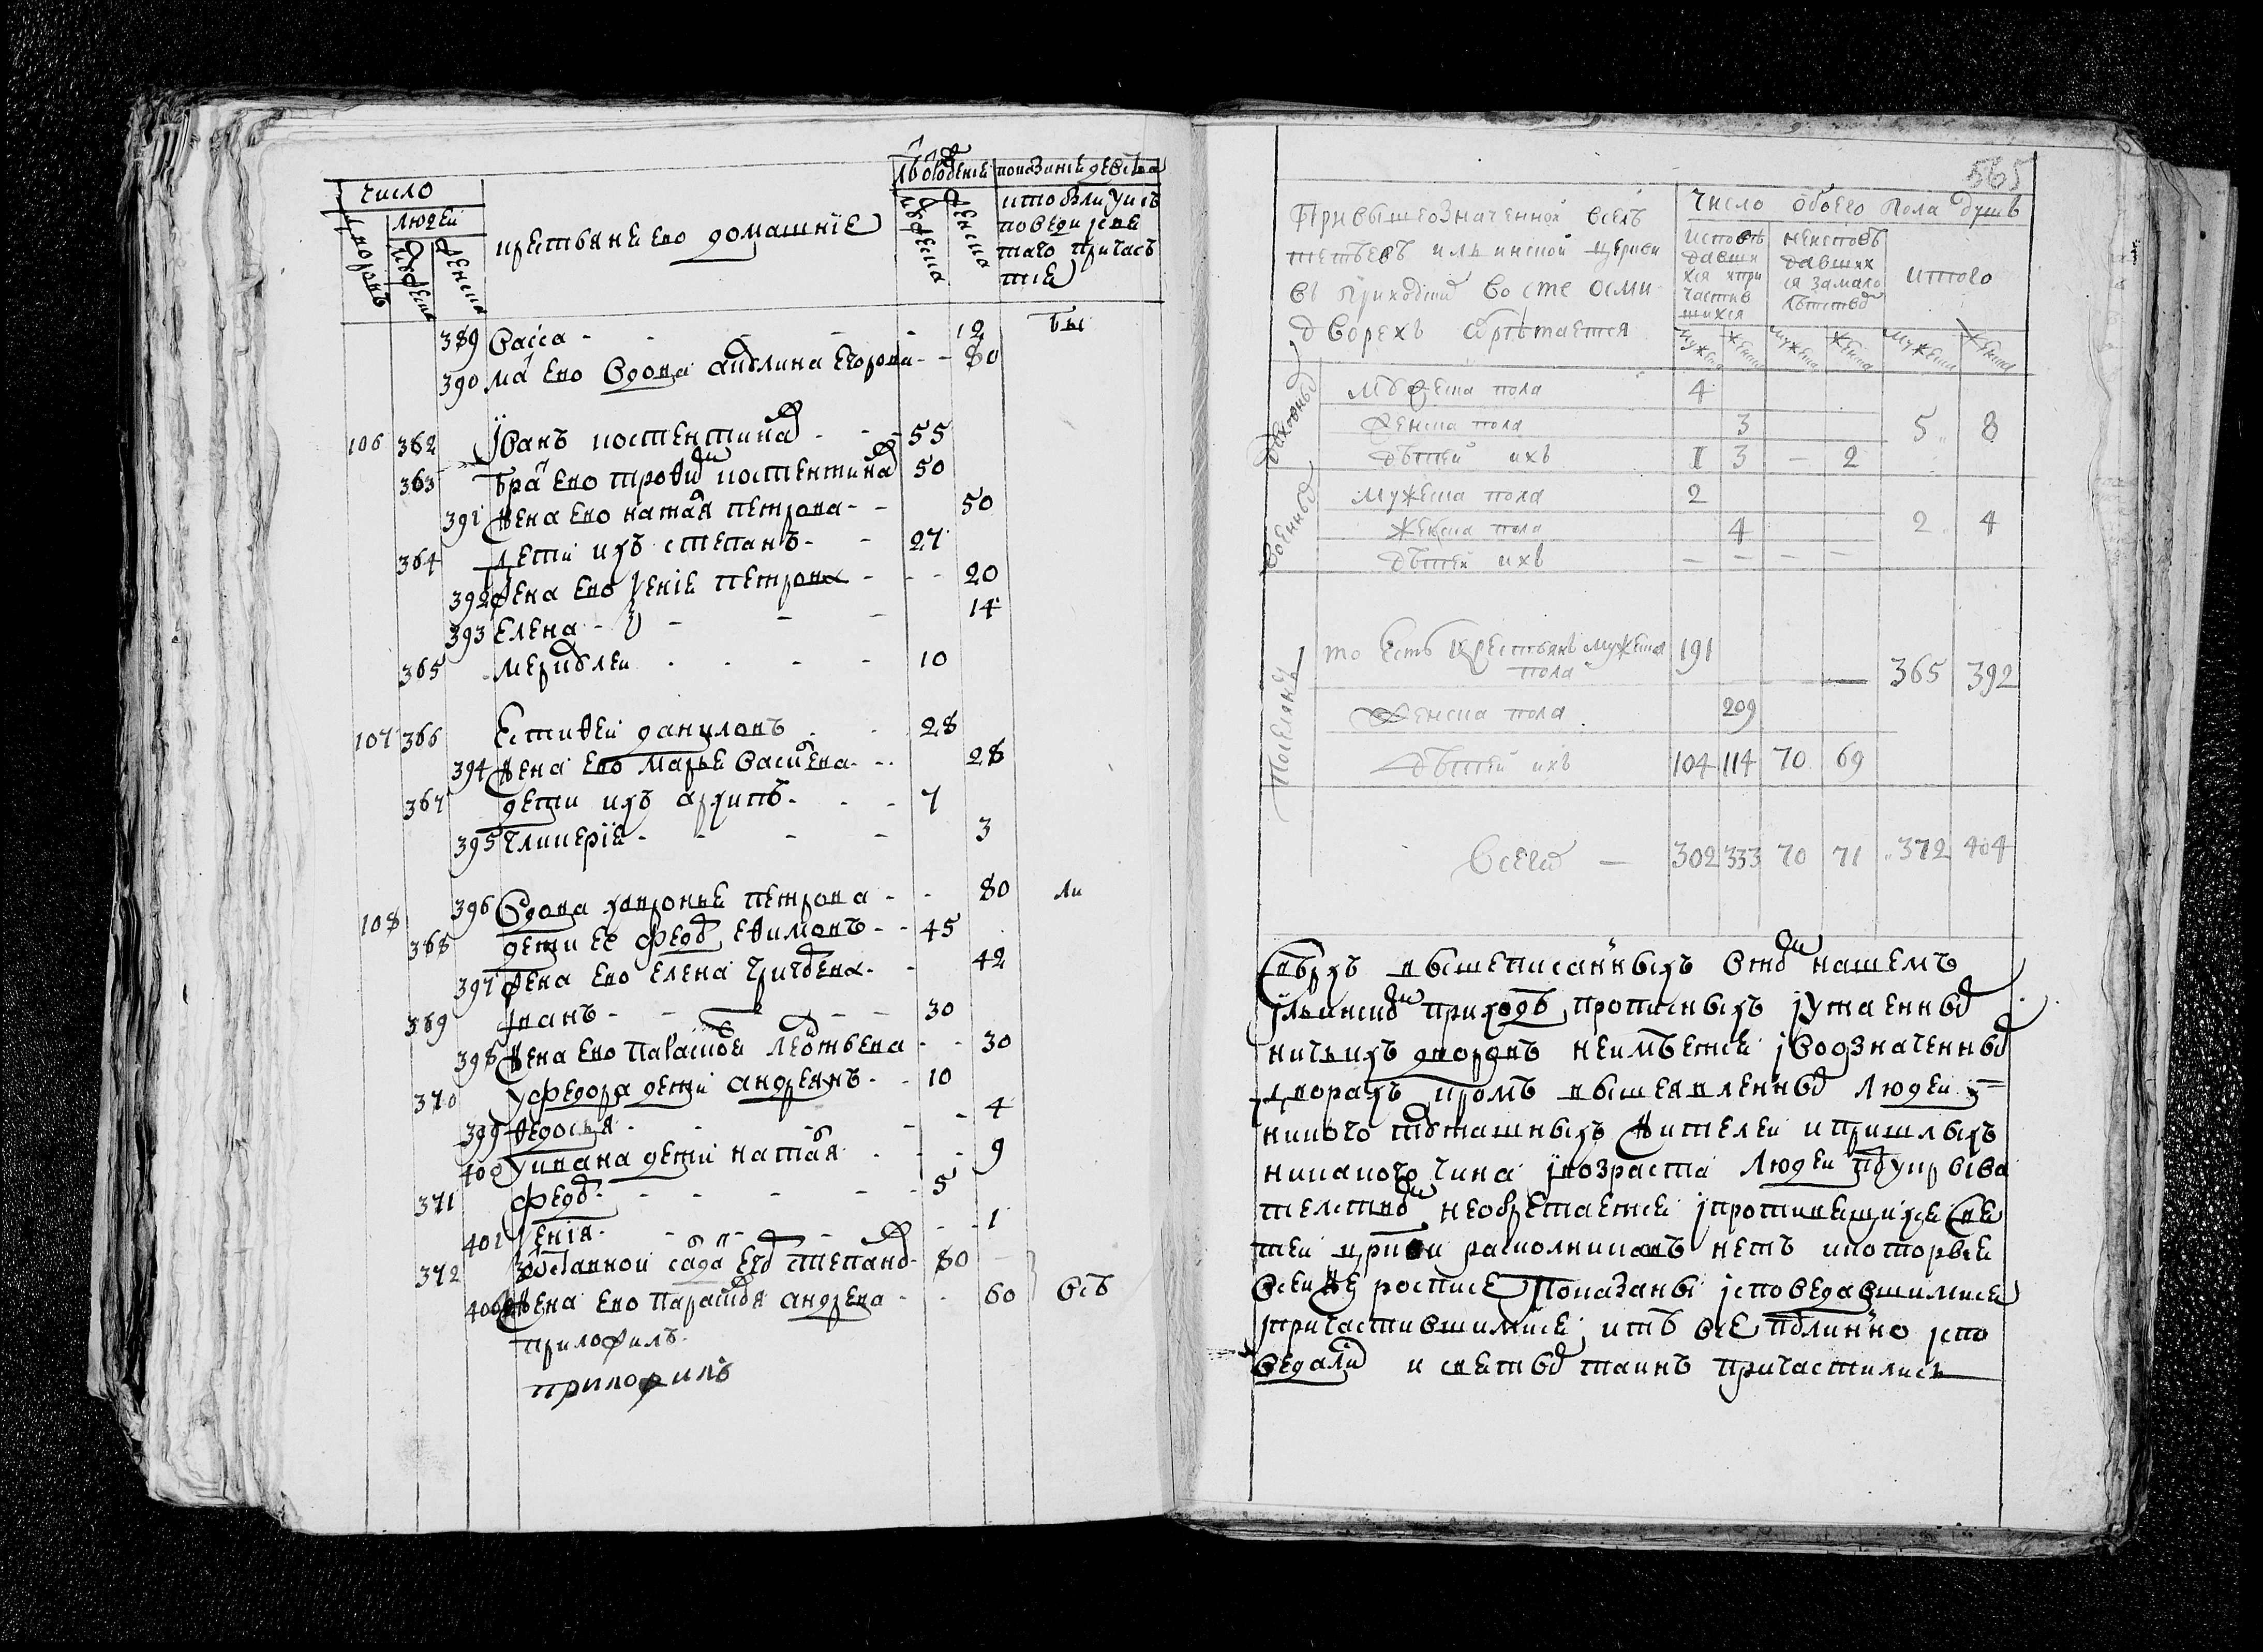 число
людей
дворовъ
мужеска
женска
крестьяне ево домашние
лѣта от рождения
мужеска
женска
показание действа
кто были у исъ
поведи и све
таго причас
тие
389 Васса - - - - - 12 бы
390 ма ево вдова акулина Егорова - - 80
106 362 Иванъ костентинов - - 55
363 бра ево трофим костентинов 50
391 жена ево наталя петрова - - 50
364 дети ихъ степанъ - - 27
392 жена ево Ксение петрова - - - 20
393 Елена - - - - 14
365 меркулеи - - - - 10
107 366 Естифеи даниловъ - - 28
394 жена ево марье Василева - - 28
367 дети ихъ архипъ - - - 7
395 гликерие - - - - 3
108 396 Вдова хавронье петрова - - 80 ли
368 дети ее федор ефимовъ - - 45
397 жена ево елена григорева - - 42
369 иванъ - - - - 30
398 жена ево параскове леонтьева - - 30
370 у федора дети андреянъ - - 10
399 федосья - - - - 4
400 у ивана дети наталя - - - 9
371 федор - - - - - 5
401 Ксения - - - - - 1
372 отставной салда степанов - 80
400 жена ево парасковя андреева - - 60 всъ
приложилъ
приложилъ
565
При вышеозначенной всехъ
светыхъ ильинской церкви
въ приходи во сте осми
дворехъ обрѣтается
число обоего пола душъ
исповѣ
давши
хся и при
частив
шихся
неисповѣ
давших
ся за мало
лѣтствомъ
итого
мужеска женска мужеска женска мужеска женска
духовных
мужеска пола 4
женска пола 3
дѣтей ихъ 1 3 - 2
5 8
военных
мужеска пола 2
женска пола 4
дѣтей ихъ - - - -
2 4
поселянъ
то есть крестьянъ мужеска
пола 191
женска пола 209
дѣтей ихъ 104 114 70 69
365 392
всего - 302 333 70 71 372 404
Сверхъ вышеписанныхъ в том нашемъ
ильинском приходѣ прописных и утаенных
ничьихъ дворовъ неимѣетсе и в означенных
дворахъ кромѣ вышеявленных людей
никого тутошныхъ жителей и пришлыхъ
никакого чина и возраста людей под укрыва
телствомъ необретаетсе и противещихсе све
теи церкви расколниковъ нетъ и которые
в сеи же росписе показаны исповедавшимисе
и причастившимисе и тѣ все подлинно испо
ведали и светых таинъ причастились